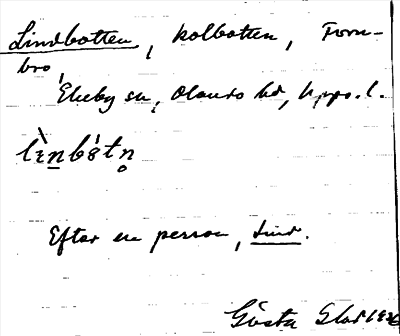 Lindbotten, kolbotten, Torn-
bro,
Ekeby sn, Olands hd, Upps. l.
lìnbótn̥
Efter en person, Lind.
Gösta